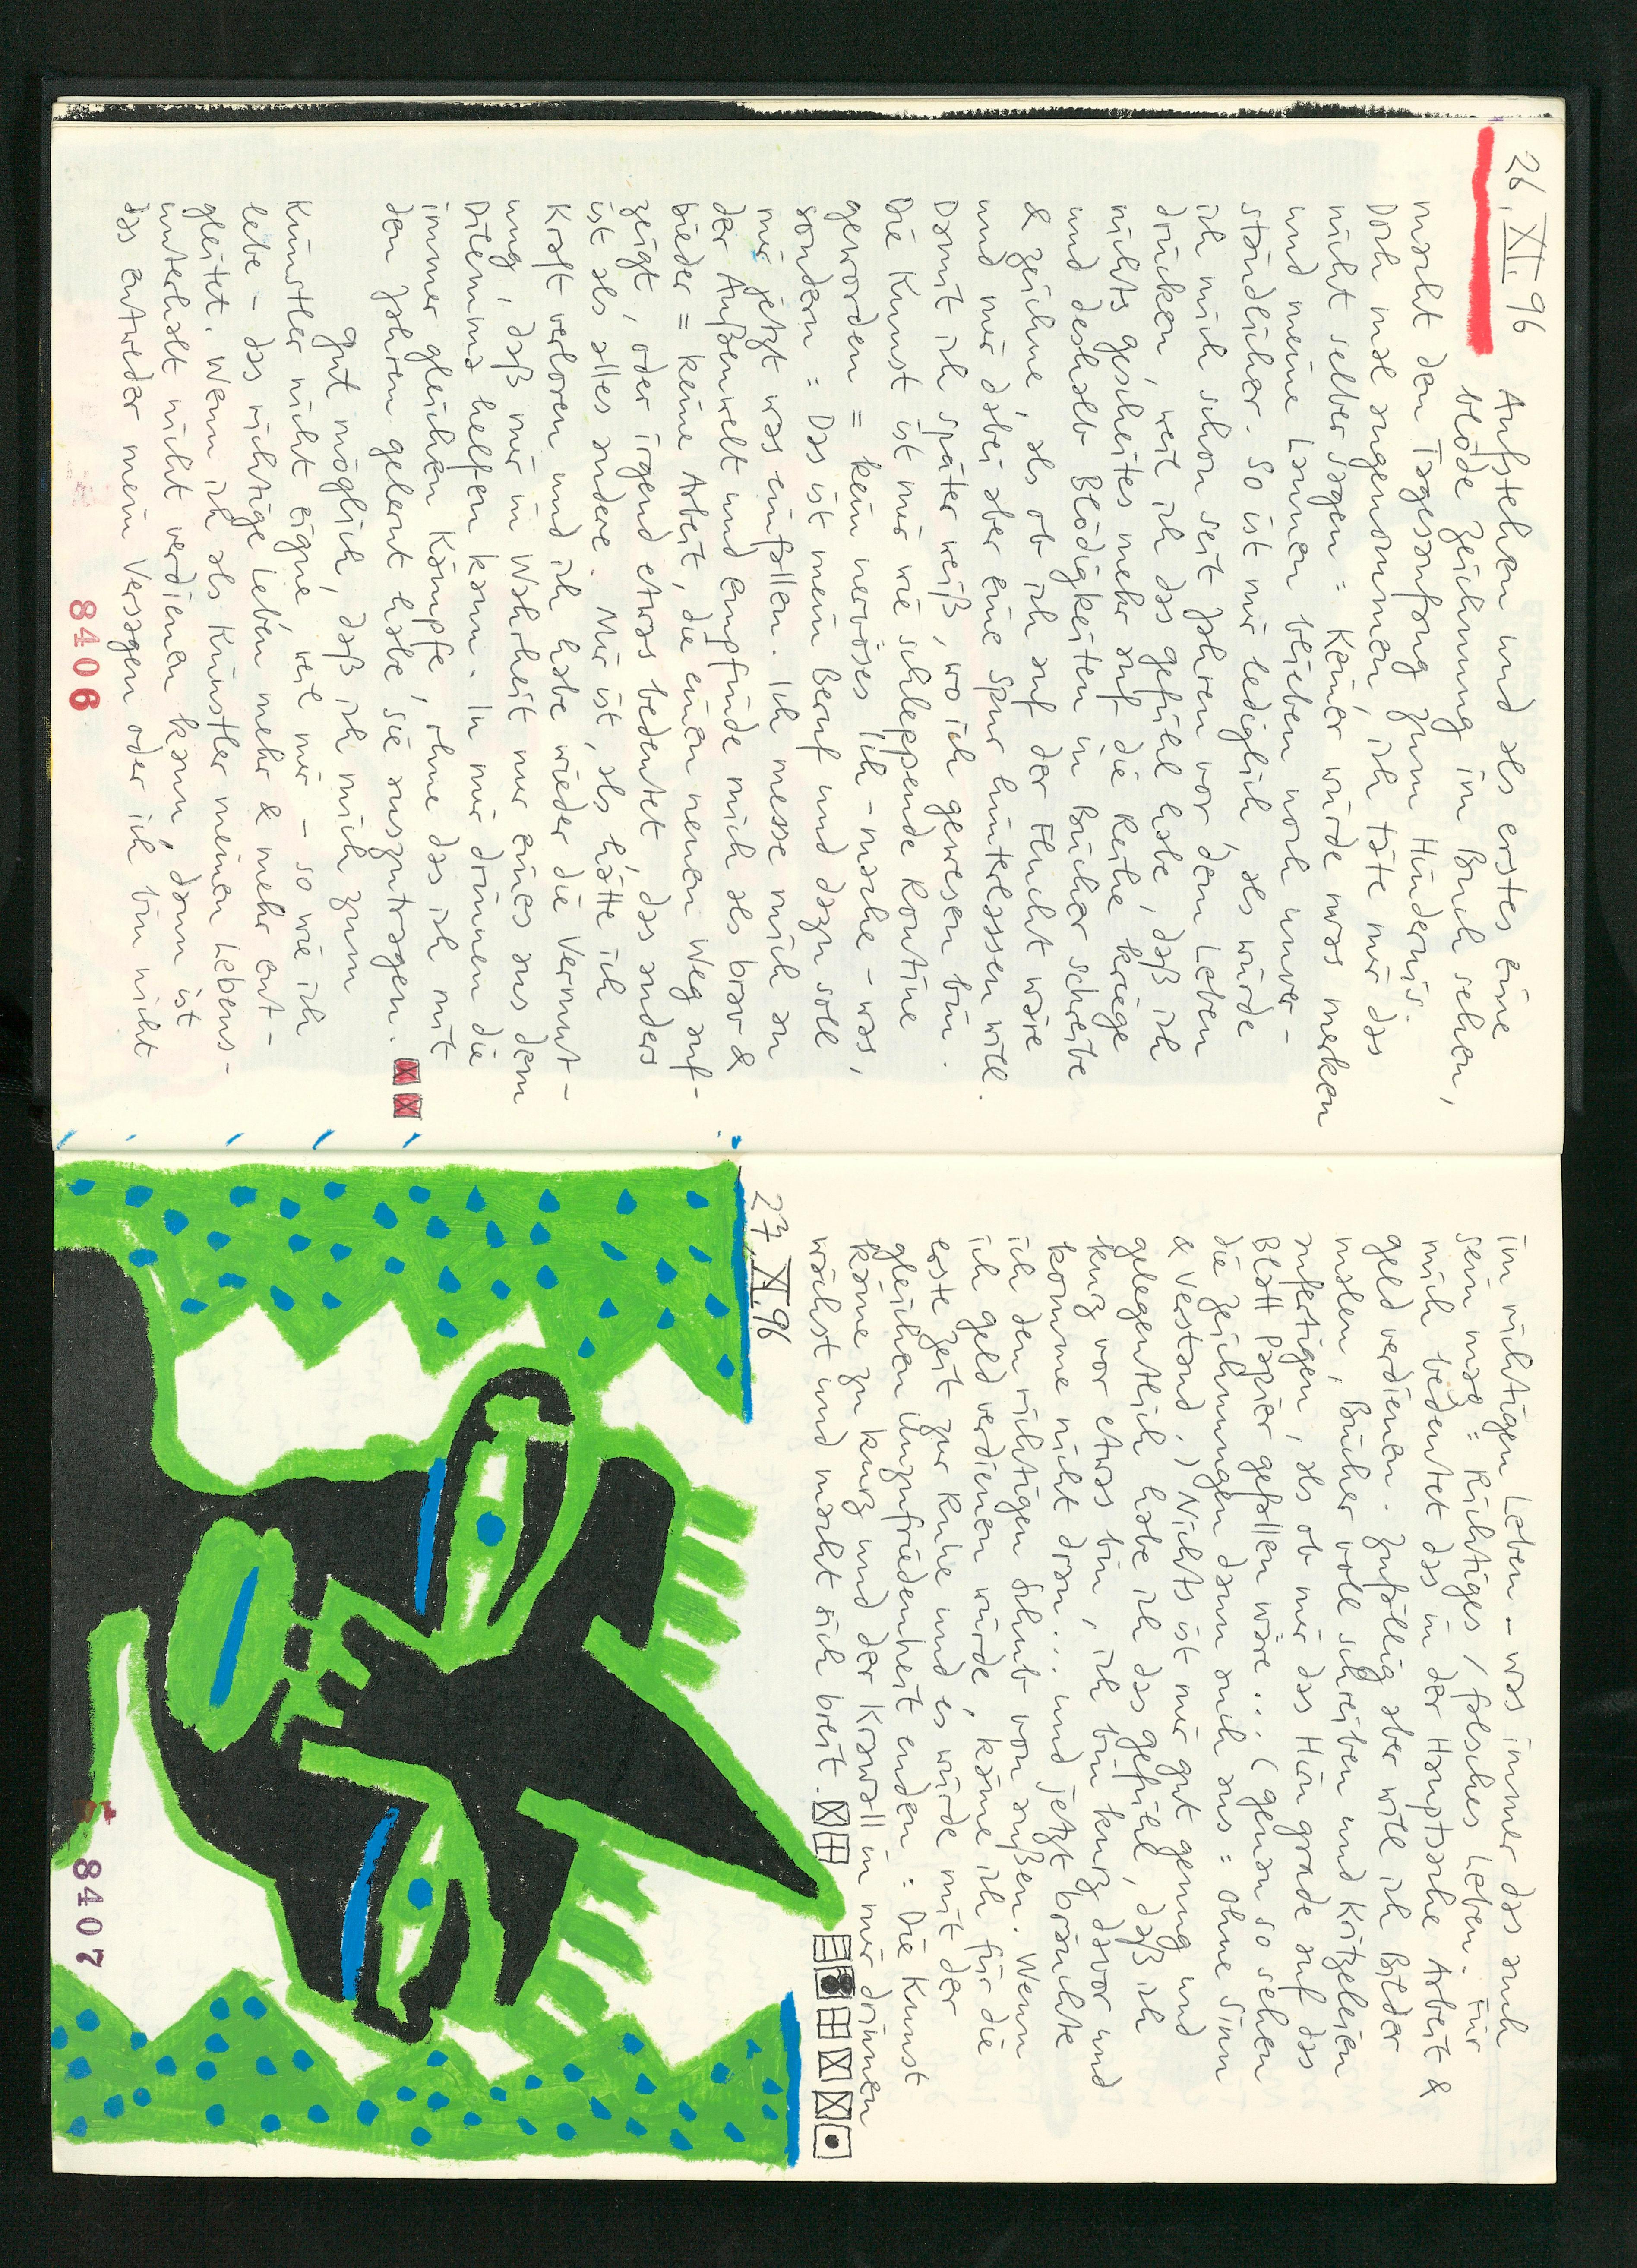 26.XI.96
Aufstehen und als erstes eine
blöde Zeichnung im Buch sehen,
macht den Tagesanfang zum Hindernis.
Doch mal angenommen, ich täte mir das
nicht selber sagen = Keiner würde was merken
und meine Launen blieben noch unver-
ständlicher. So ist mir lediglich, als würde
ich mich schon seit Jahren vor dem Leben
drücken, weil ich das Gefühl habe, daß ich
nichts gescheites mehr auf die Reihe kriege
und deshalb Blödigkeiten in Bücher schreibe
& zeichne, als ob ich auf der Flucht wäre
und mir dabei aber eine Spur hinterlassen will.
Damit ich später weiß, wo ich gewesen bin.
Die Kunst ist mir wie schleppende Routine
geworden = kein nervöses Ich-mache-was,
sondern = Das ist mein Beruf und dazu soll
mir jetzt was einfallen. Ich messe mich an
der Außenwelt und empfinde mich als brav &
bieder = keine Arbeit, die einen neuen Weg auf-
zeigt, oder irgend etwas bedeutet, das anders
ist als alles andere. Mir ist, als hätte ich
Kraft verloren und ich habe wieder die Vermut-
ung, daß mir in Wahrheit nur eines aus dem
Dilemma helfen kann. In mir drinnen die
immer gleichen Kämpfe, ohne das ich mit
den Jahren gelernt habe sie auszutragen.
Gut möglich, daß ich mich zum
Künstler nicht eigne, weil mir - so wie ich
lebe - das richtige Leben mehr & mehr ent-
gleitet. Wenn ich als Künstler meinen Lebens-
unterhalt nicht verdienen kann, dann ist
das entweder mein Versagen oder ich bin nicht
8406
im richtigen Leben - was immer das auch
sein mag = Richtiges / falsches Leben. Für
mich bedeutet das in der Hauptsache Arbeit &
Geld verdienen. Zufällig aber will ich Bilder
malen, Bücher voll schreiben und Kritzeleien
anfertigen, als ob mir das Hirn grade auf das
Blatt Papier gefallen wäre... (genau so sehen
die Zeichnungen dann auch aus = ohne Sinn
& Verstand.) Nichts ist mir gut genug und
gelegentlich habe ich das Gefühl, daß ich
kurz vor etwas bin, ich bin kurz davor und
komme nicht dran... und jetzt bräuchte
ich den richtigen Schub von außen. Wenn
ich Geld verdienen würde, käme ich für die
erste Zeit zur Ruhe und es würde mit der
gleichen Unzufriedenheit enden = Die Kunst
käme zu kurz und der Krawall in mir drinnen
wächst und macht sich breit.
27.XI.96
8407